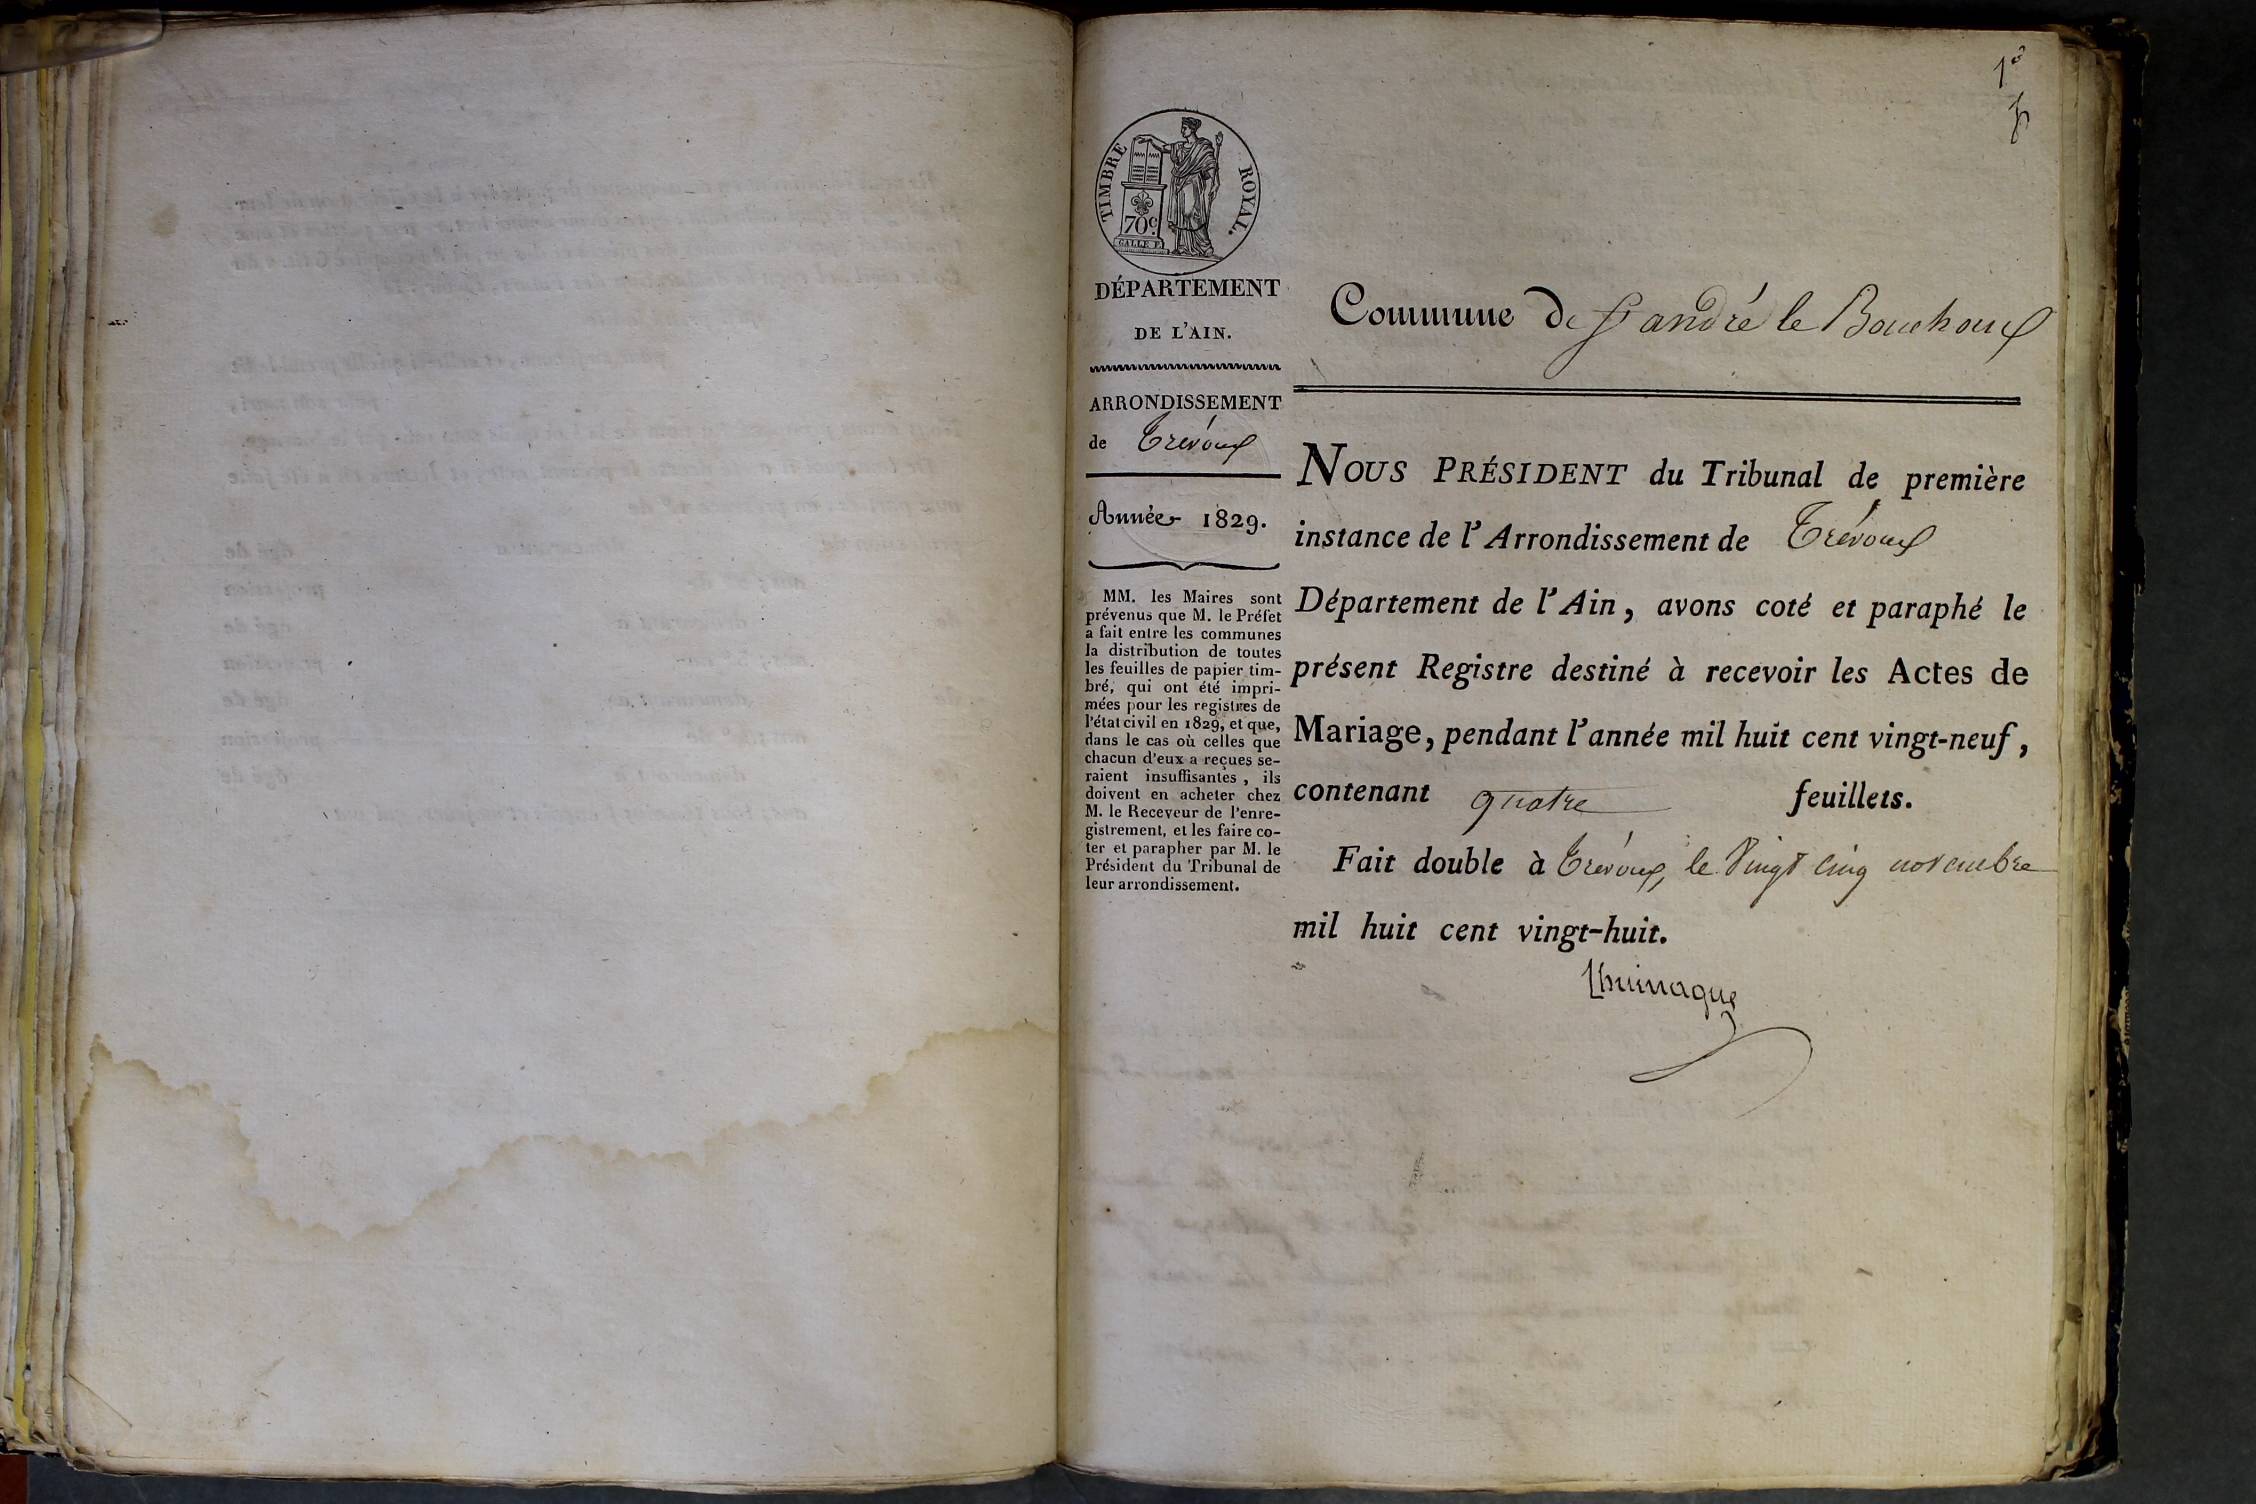 1er
TIMBRE ROYAL.
70c.
GALLE F.
DÉPARTEMENT
DE L'AIN.
ARRONDISSEMENT
de Trévoux
Année 1829.
MM. les Maires sont
prévenus que M. le Préfet
a fait entre les communes
la distribution de toutes
les feuilles de papier tim-
bré, qui ont été impri-
mées pour les registres de
l'état civil en 1829, et que,
dans le cas où celles que
chacun d'eux a reçues se-
raient insuffisantes, ils
doivent en acheter chez
M. le Receveur de l'enre-
gistrement, et les faire co-
ter et parapher par M. le
Président du Tribunal de
leur arrondissement.
Commune De St andré le Bouchoux
NOUS PRÉSIDENT du Tribunal de première
instance de l'Arrondissement de Trévoux
Département de l'Ain, avons coté et paraphé le
présent Registre destiné à recevoir les Actes de
Mariage, pendant l'année mil huit cent vingt-neuf,
contenant quatre feuillets.
Fait double à Trévoux, le Vingt cinq novembre
mil huit cent vingt-huit.